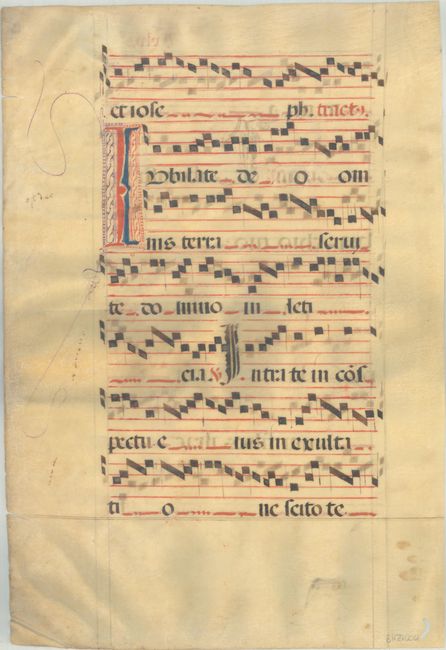 et iose ph. tractꝰ.
Iobilate de o om
nis terra serui
te do mino in leti
cia ℣ Intrate in cōs
pectu e ius in exulta
ti o ne scito te